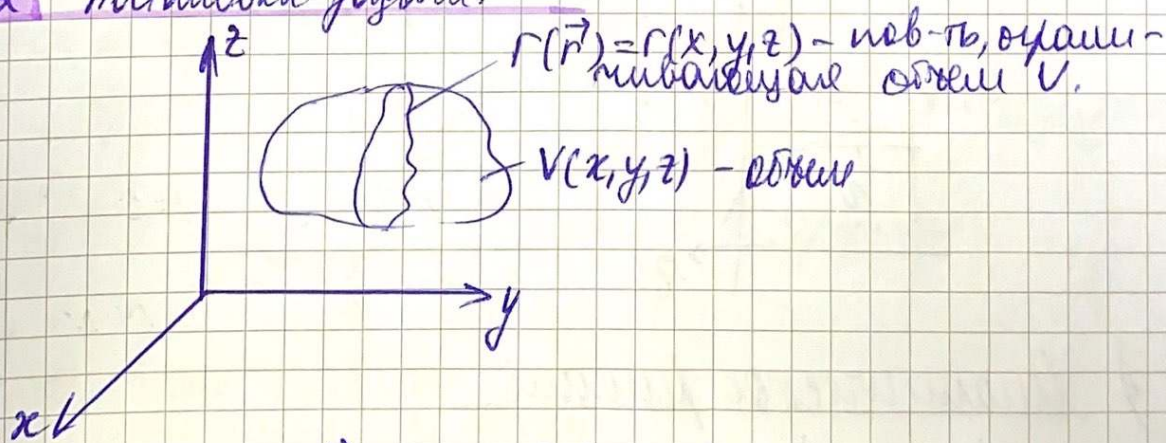 задачи.
z
Г(r⃗)=Г(x,y,z) – пов-ть, ограни-
чивающая объем V.
V(x,y,z) – объем
y
x